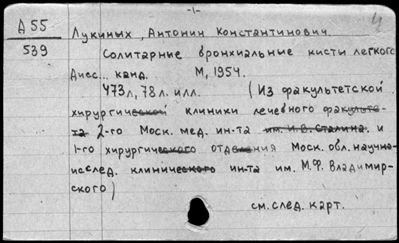 -1-
Д 55
539
Лукиных, Антонин Константинович
Солитарные бронхиальные кисты легкого
Дисс... канд. М, 1954.
473 л, 78 л. илл. (Из факультетской
хирургической клиники лечебного факульте-
та 2-го Моск. мед. ин-та им. И.В. Сталина. и
1-го хирургического отделения Моск. обл. научно-
исслед. клинического ин-та им. М.Ф. Владимир-
ского)
см. след. карт.